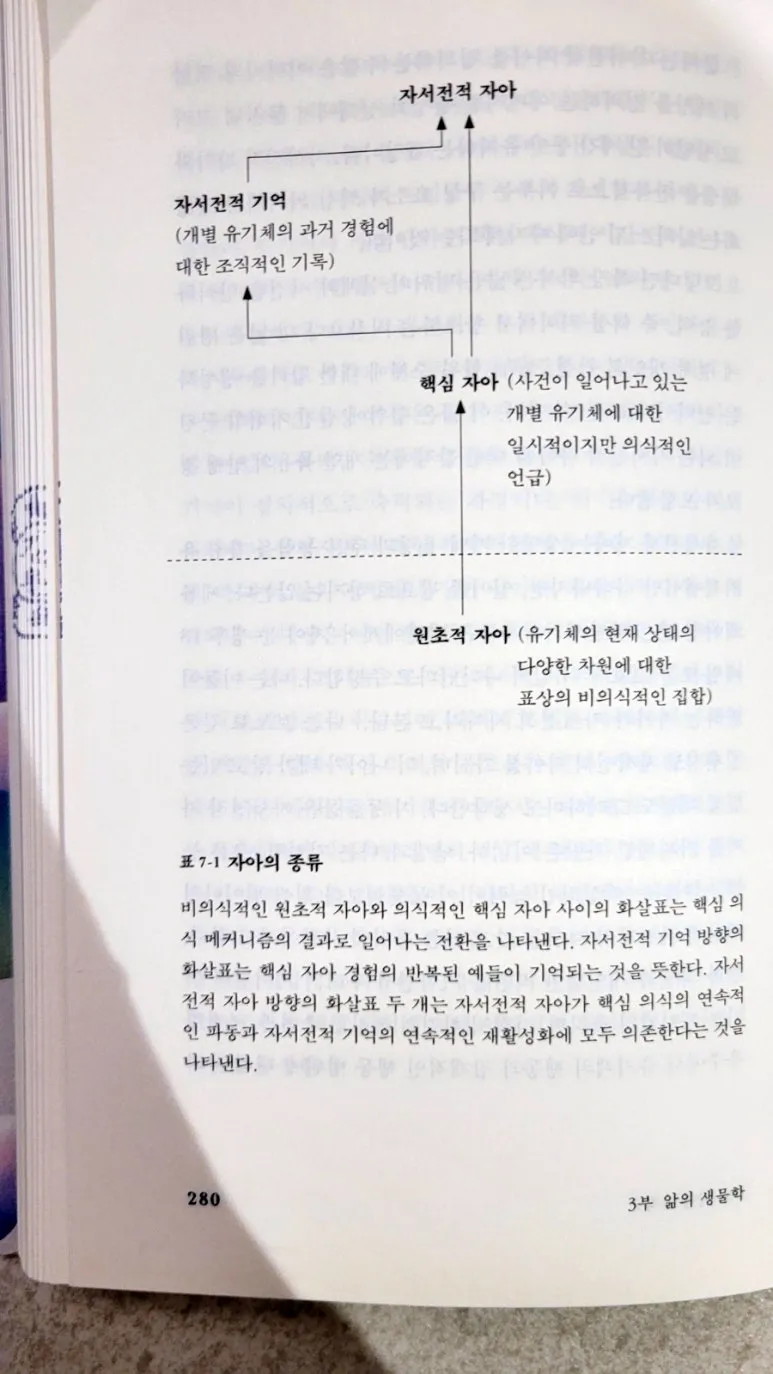 자서전적 자아
자서전적 기억
(개별 유기체의 과거 경험에
대한 조직적인 기록)
핵심 자아 (사건이 일어나고 있는
개별 유기체에 대한
일시적이지만 의식적인
언급)
원초적 자아 (유기체의 현재 상태의
다양한 차원에 대한
표상의 비의식적인 집합)
표 7-1 자아의 종류
비의식적인 원초적 자아와 의식적인 핵심 자아 사이의 화살표는 핵심 의
식 메커니즘의 결과로 일어나는 전환을 나타낸다. 자서전적 기억 방향의
화살표는 핵심 자아 경험의 반복된 예들이 기억되는 것을 뜻한다. 자서
전적 자아 방향의 화살표 두 개는 자서전적 자아가 핵심 의식의 연속적
인 파동과 자서전적 기억의 연속적인 재활성화에 모두 의존한다는 것을
나타낸다.
280
3부 앎의 생물학